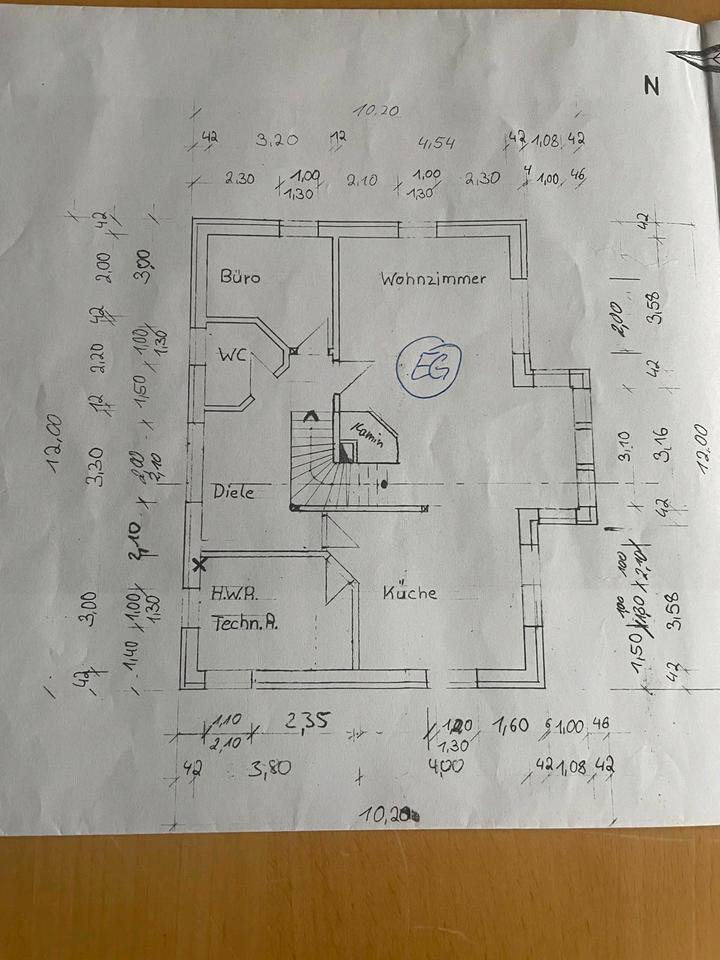 N
10.20
42 3,20 12 4,54 42 1,08 42
2.30 1,00 2.10 1,00 2.30 4 1,00 46
1,30 1,30
Büro
Wohnzimmer
WC
EG
Kamin
Diele
Küche
H.W.R.
Techn.R.
12,00
42 3,00 3,30 12 2,20 42 2,00 42
1,40 1,00 2,10 2,00 1,50 1,00 3,00
1,30 2,10 1,30
2,00
3,10
1,50
42 3,58 42 3,16 42 3,58 42
12,00
1,10 2,35 1,60 6 1,00 46
2,10 1,30
42 3,80 4,00 42 1,08 42
10,20